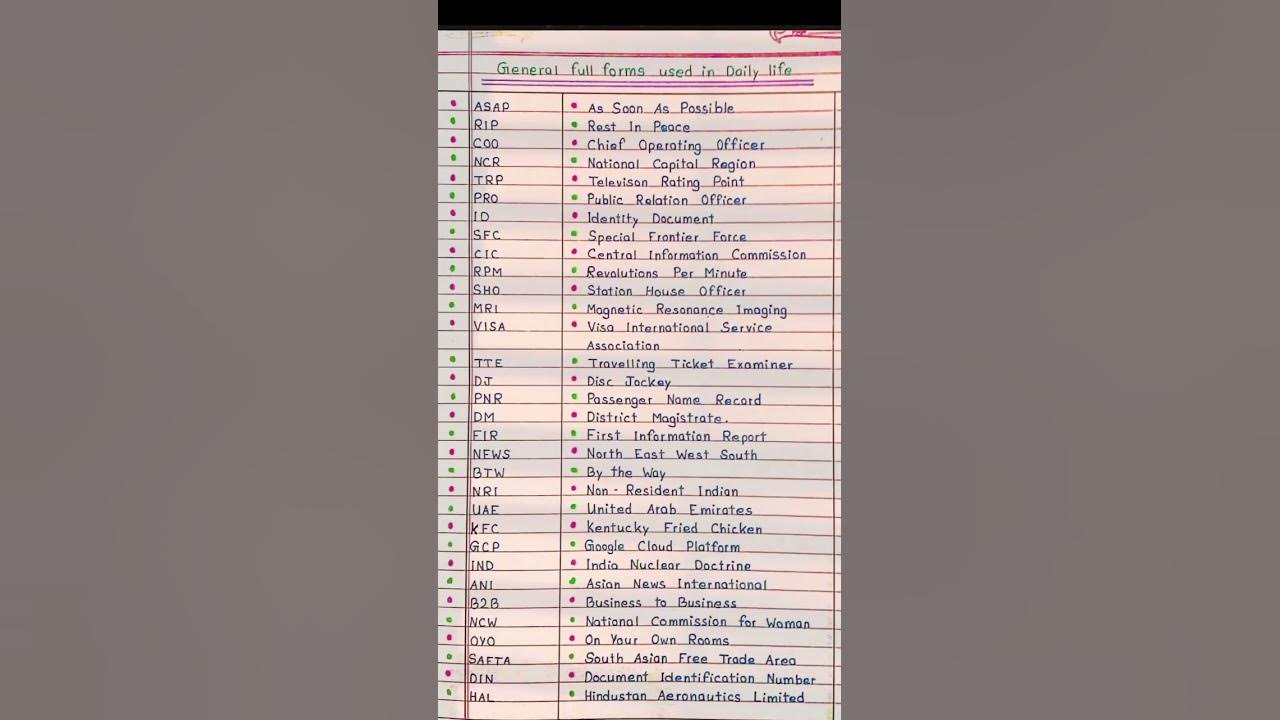 General full forms used in Daily life
ASAP As Soon As Possible
RIP Rest In Peace
COO Chief Operating Officer
NCR National Capital Region
TRP Televison Rating Point
PRO Public Relation Officer
ID Identity Document
SFC Special Frontier Force
CIC Central Information Commission
RPM Revolutions Per Minute
SHO Station House Officer
MRI Magnetic Resonance Imaging
VISA Visa International Service
Association
TTE Travelling Ticket Examiner
DJ Disc Jockey
PNR Passenger Name Record
DM District Magistrate.
FIR First Information Report
NEWS North East West South
BTW By the Way
NRI Non - Resident Indian
UAE United Arab Emirates
KFC Kentucky Fried Chicken
GCP Google Cloud Platform
IND India Nuclear Doctrine
ANI Asian News International
B2B Business to Business
NCW National Commission for Woman
OYO On Your Own Rooms
SAFTA South Asian Free Trade Area
DIN Document Identification Number
HAL Hindustan Aeronautics Limited